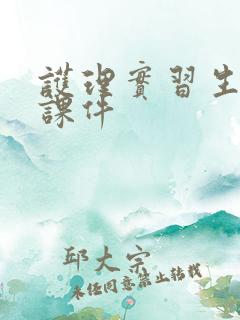 護理實習生
課件
邱大宗
未任同意禁止转载